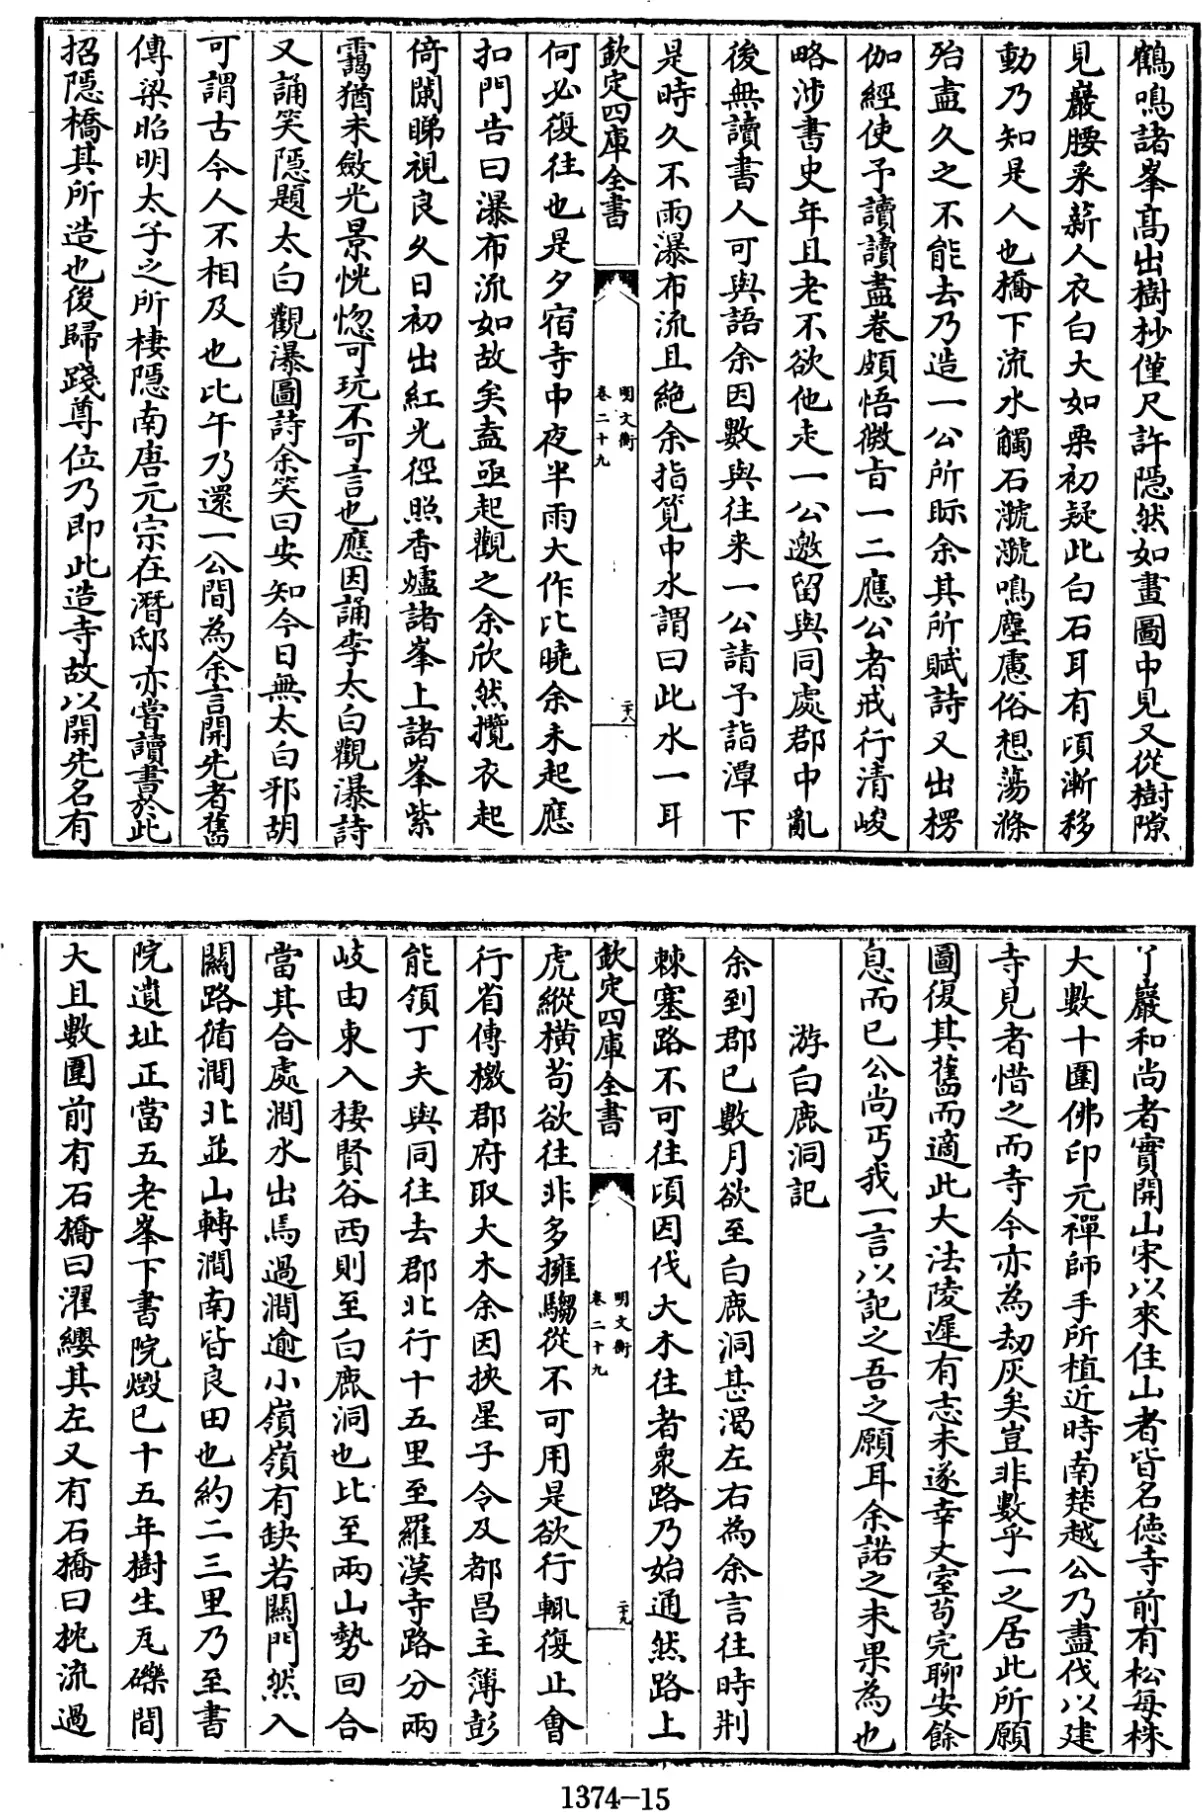 鶴鳴諸峯髙出樹杪僅尺許隠然如畫圖中見又從樹隙
見巖腰采薪人衣白大如粟初疑此白石耳有頃漸移
動乃知是人也橋下流水觸石㶁㶁鳴塵慮俗想蕩滌
殆盡久之不能去乃造一公所眎余其所賦詩又出楞
伽經使予讀讀盡卷頗悟微旨一二應公者戒行清峻
略涉書史年且老不欲他走一公邀留與同處郡中亂
後無讀書人可與語余因數與往来一公請予詣潭下
是時久不雨瀑布流且絶余指筧中水謂曰此水一耳
欽定四庫全書
明文衡
卷二十九
二十八
何必復往也是夕宿寺中夜半雨大作比曉余未起應
扣門告曰瀑布流如故矣盍亟起觀之余欣然攬衣起
倚闌睇視良久日初出紅光徑照香爐諸峯上諸峯紫
靄猶未斂光景恍惚可玩不可言也應因誦李太白觀瀑詩
又誦笑隠題太白觀瀑圖詩余笑曰安知今日無太白邪胡
可謂古今人不相及也比午乃還一公間為余言開先者舊
傳梁昭明太子之所棲隠南唐元宗在潛邸亦嘗讀書於此
招隠橋其所造也後歸踐尊位乃即此造寺故以開先名有
丫巖和尚者實開山宋以來住山者皆名德寺前有松每株
大數十圍佛印元禪師手所植近時南楚越公乃盡伐以建
寺見者惜之而寺今亦為刼灰矣豈非數乎一之居此所願
圖復其舊而適此大法陵遲有志未遂幸丈室苟完聊安餘
息而已公尚丐我一言以記之吾之願耳余諾之未果為也
游白鹿洞記
余到郡已數月欲至白鹿洞甚渴左右為余言往時荆
棘塞路不可往頃因伐大木往者衆路乃始通然路上
欽定四庫全書
明文衡
卷二十九
二十九
虎縱横茍欲往非多擁騶從不可用是欲行輒復止會
行省傳檄郡府取大木余因挾星子令及都昌主簿彭
能領丁夫與同往去郡北行十五里至羅漢寺路分兩
岐由東入棲賢谷西則至白鹿洞也比至兩山勢回合
當其合處澗水出焉過澗逾小嶺嶺有缺若關門然入
關路循澗北並山轉澗南皆良田也約二三里乃至書
院遺址正當五老峯下書院燬已十五年樹生瓦礫間
大且數圍前有石橋曰濯纓其左又有石橋曰枕流過
1374-15